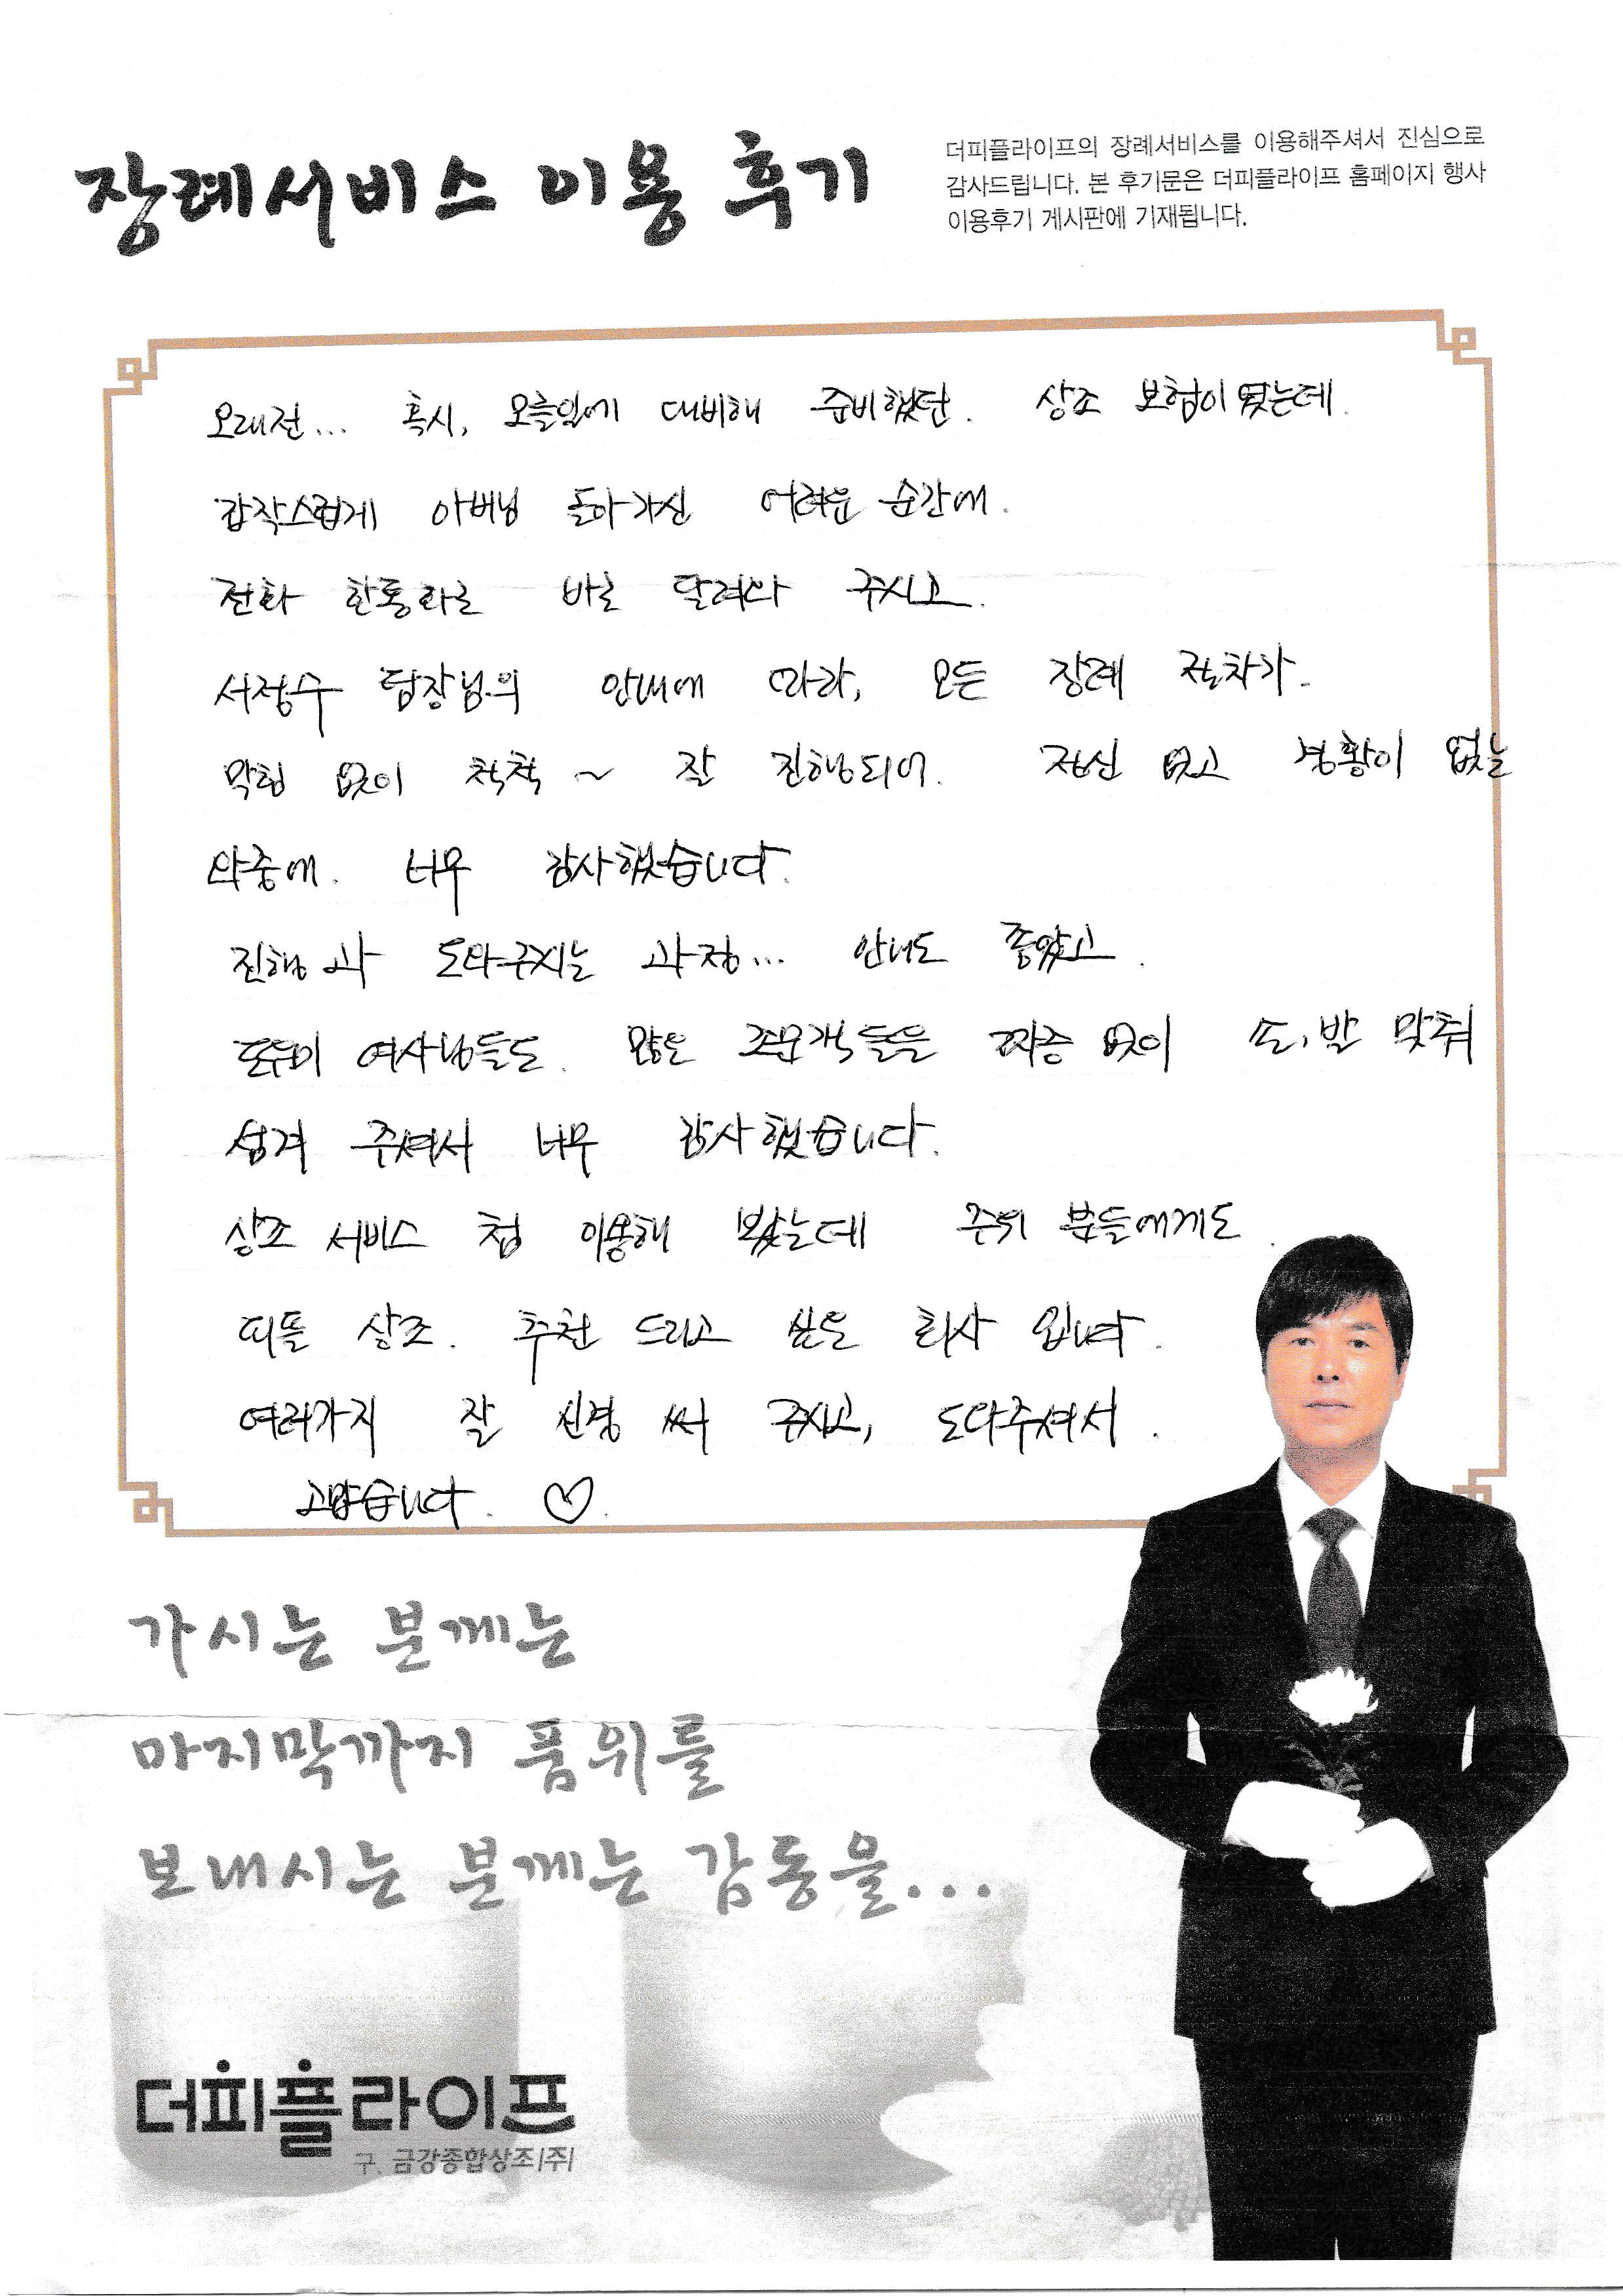 장례서비스 이용 후기
더피플라이프의 장례서비스를 이용해주셔서 진심으로
감사드립니다. 본 후기문은 더피플라이프 홈페이지 행사
이용후기 게시판에 기재됩니다.
오래전... 혹시, 모를일에 대비해 준비했던. 상조 보험이였는데.
갑작스럽게 아버님 돌아가신 어려운 순간에.
전화 한통화로 바로 달려와 주시고.
서정수 팀장님의 안내에 따라, 모든 장례 절차가.
막힘 없이 척척~ 잘 진행되어. 정신 없고 경황이 없는
와중에. 너무 감사했습니다.
진행과 도와주시는 과정... 안내도 좋았고.
도우미 여사님들도. 많은 조문객들을 짜증 없이 손,발 맞춰
섬겨 주셔서 너무 감사했습니다.
상조 서비스 첨 이용해 봤는데 주위 분들에게도.
피플 상조. 추천 드리고 싶은 회사 입니다.
여러가지 잘 신경 써 주시고, 도와주셔서.
고맙습니다. ♡.
가시는 분께는
마지막까지 품위를
보내시는 분께는 감동을...
더피플라이프
구. 금강종합상조(주)